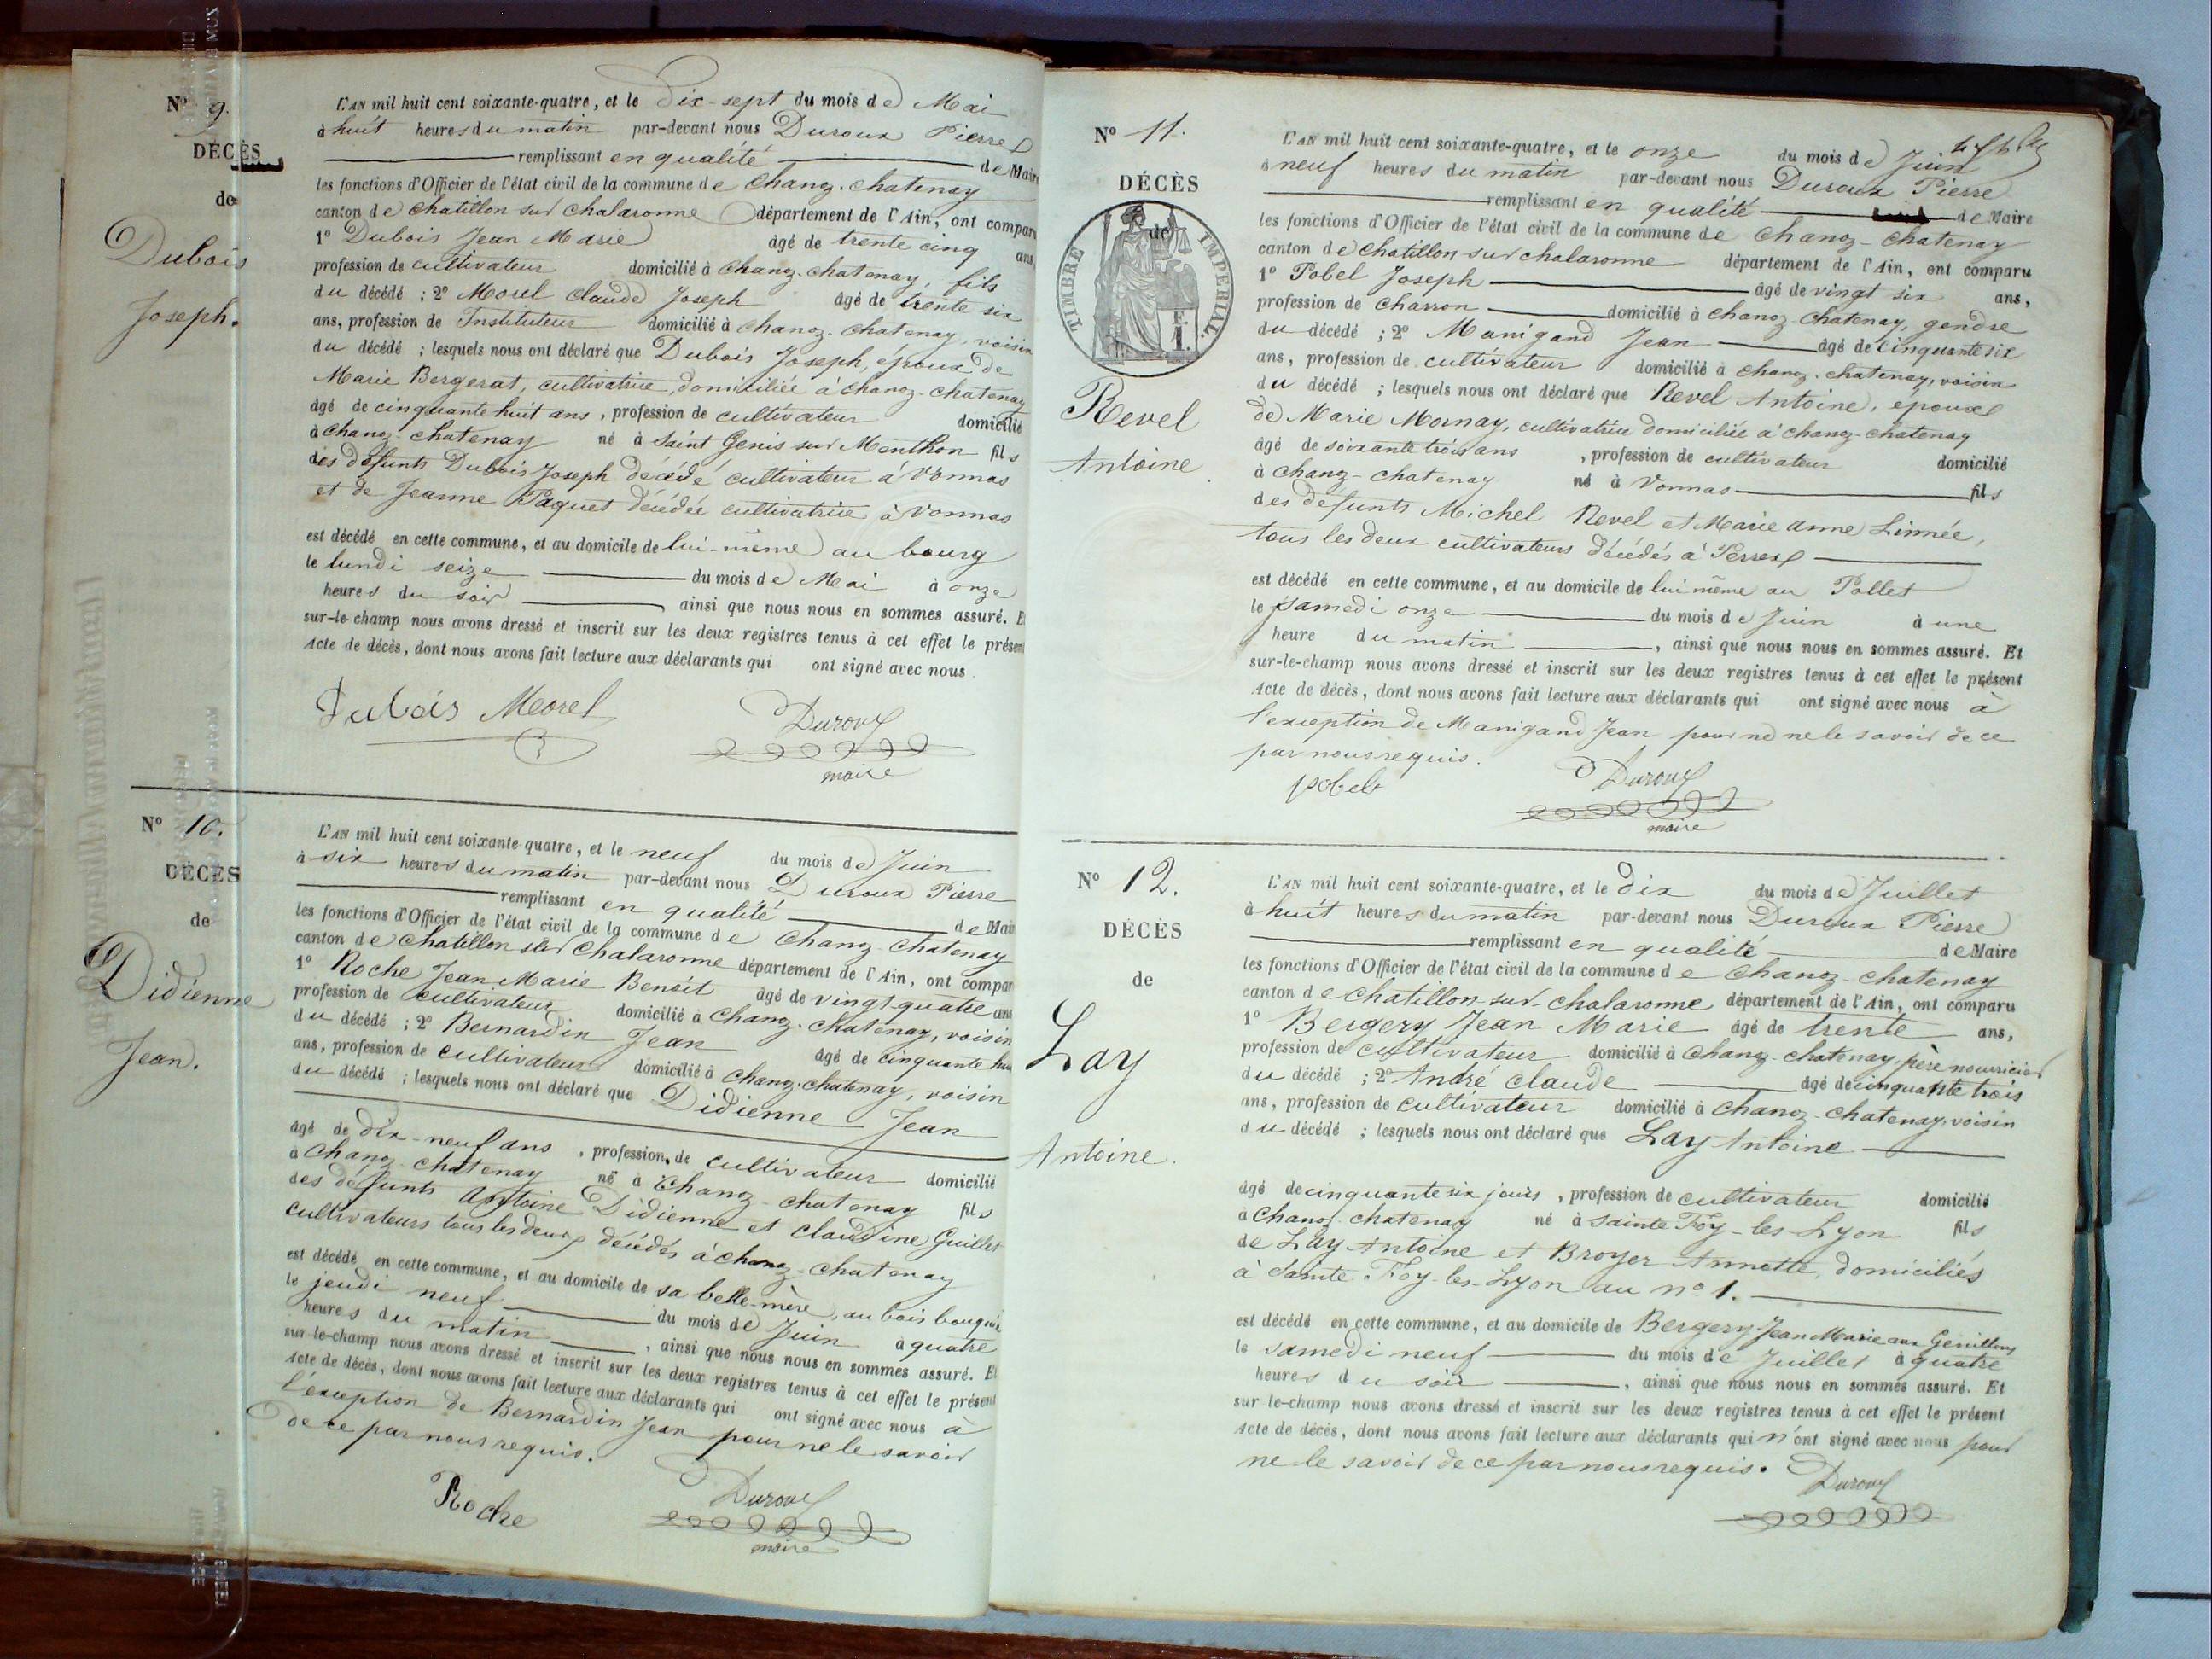 N° 9.
DÉCÈS
de
Dubois
Joseph.
L'AN mil huit cent soixante-quatre, et le dix-sept du mois de Mai
à huit heures du matin par-devant nous Duroux Pierre
remplissant en qualité de Maire
les fonctions d'Officier de l'état civil de la commune de Chanoz-Chatenay
canton de Chatillon sur Chalaronne département de l'Ain, ont comparu
1° Dubois Jean Marie âgé de trente cinq ans,
profession de cultivateur domicilié à Chanoz-Chatenay, fils
du décédé ; 2° Morel Claude Joseph âgé de trente six
ans, profession de Instituteur domicilié à Chanoz-Chatenay, voisin
du décédé ; lesquels nous ont déclaré que Dubois Joseph, époux de
Marie Bergerat, cultivatrice, domiciliée à Chanoz-Chatenay
âgé de cinquante huit ans, profession de cultivateur domicilié
à Chanoz-Chatenay né à Saint Genis sur Menthon fils
des défunts Dubois Joseph décédé cultivateur à Vonnas
et de Jeanne Paquet décédée cultivatrice à Vonnas
est décédé en cette commune, et au domicile de lui-même au bourg
le lundi seize du mois de Mai à onze
heures du soir, ainsi que nous nous en sommes assuré. Et
sur-le-champ nous avons dressé et inscrit sur les deux registres tenus à cet effet le présent
Acte de décès, dont nous avons fait lecture aux déclarants qui ont signé avec nous.
Dubois Morel Duroux
maire
N° 10.
DÉCÈS
de
Didienne
Jean.
L'AN mil huit cent soixante-quatre, et le neuf du mois de Juin
à six heures du matin par-devant nous Duroux Pierre
remplissant en qualité de Maire
les fonctions d'Officier de l'état civil de la commune de Chanoz-Chatenay
canton de Chatillon sur Chalaronne département de l'Ain, ont comparu
1° Roche Jean Marie Benoit âgé de vingt quatre ans
profession de cultivateur domicilié à Chanoz-Chatenay, voisin
du décédé ; 2° Bernardin Jean âgé de cinquante huit
ans, profession de cultivateur domicilié à Chanoz-Chatenay, voisin
du décédé ; lesquels nous ont déclaré que Didienne Jean
âgé de dix-neuf ans, profession de cultivateur domicilié
à Chanoz-Chatenay né à Chanoz-Chatenay fils
des défunts Antoine Didienne et Claudine Guillet
cultivateurs tous les deux décédés à Chanoz-Chatenay
est décédé en cette commune, et au domicile de sa belle-mère, au bois
le jeudi neuf du mois de Juin à quatre
heures du matin, ainsi que nous nous en sommes assuré. Et
sur-le-champ nous avons dressé et inscrit sur les deux registres tenus à cet effet le présent
Acte de décès, dont nous avons fait lecture aux déclarants qui ont signé avec nous à
l'exception de Bernardin Jean pour ne le savoir
de ce par nous requis.
Roche Duroux
maire
N° 11.
DÉCÈS
de
TIMBRE IMPERIAL
F. 1.
Revel
Antoine
L'AN mil huit cent soixante-quatre, et le onze du mois de Juin
à neuf heures du matin par-devant nous Duroux Pierre
remplissant en qualité de Maire
les fonctions d'Officier de l'état civil de la commune de Chanoz-Chatenay
canton de Chatillon sur Chalaronne département de l'Ain, ont comparu
1° Pobel Joseph âgé de vingt six ans,
profession de charron domicilié à Chanoz Chatenay, gendre
du décédé ; 2° Manigand Jean âgé de cinquante six
ans, profession de cultivateur domicilié à Chanoz-Chatenay, voisin
du décédé ; lesquels nous ont déclaré que Revel Antoine, époux
de Marie Mornay, cultivatrice domiciliée à Chanoz-Chatenay
âgé de soixante trois ans, profession de cultivateur domicilié
à Chanoz-Chatenay né à Vonnas fils
des défunts Michel Revel et Marie Anne Linnée,
tous les deux cultivateurs décédés à Perrex
est décédé en cette commune, et au domicile de lui même au Pollet
le samedi onze du mois de Juin à une
heure du matin, ainsi que nous nous en sommes assuré. Et
sur-le-champ nous avons dressé et inscrit sur les deux registres tenus à cet effet le présent
Acte de décès, dont nous avons fait lecture aux déclarants qui ont signé avec nous à
l'exception de Manigand Jean pour ne ne le savoir de ce
par nous requis.
pobel Duroux
maire
N° 12.
DÉCÈS
de
Lay
Antoine.
L'AN mil huit cent soixante-quatre, et le dix du mois de Juillet
à huit heures du matin par-devant nous Duroux Pierre
remplissant en qualité de Maire
les fonctions d'Officier de l'état civil de la commune de Chanoz-Chatenay
canton de Chatillon-sur-Chalaronne département de l'Ain, ont comparu
1° Bergery Jean Marie âgé de trente ans,
profession de cultivateur domicilié à Chanoz-Chatenay, père nourricier
du décédé ; 2° André Claude âgé de cinquante trois
ans, profession de cultivateur domicilié à Chanoz-Chatenay, voisin
du décédé ; lesquels nous ont déclaré que Lay Antoine
âgé de cinquante six jours, profession de cultivateur domicilié
à Chanoz-Chatenay né à Sainte Foy-les-Lyon fils
de Lay Antoine et Broyer Annette, domiciliés
à Sainte Foy-les-Lyon au n° 1.
est décédé en cette commune, et au domicile de Bergery Jean Marie aux
le samedi neuf du mois de Juillet à quatre
heures du soir, ainsi que nous nous en sommes assuré. Et
sur-le-champ nous avons dressé et inscrit sur les deux registres tenus à cet effet le présent
Acte de décès, dont nous avons fait lecture aux déclarants qui n'ont signé avec nous pour
ne le savoir de ce par nous requis.
Duroux